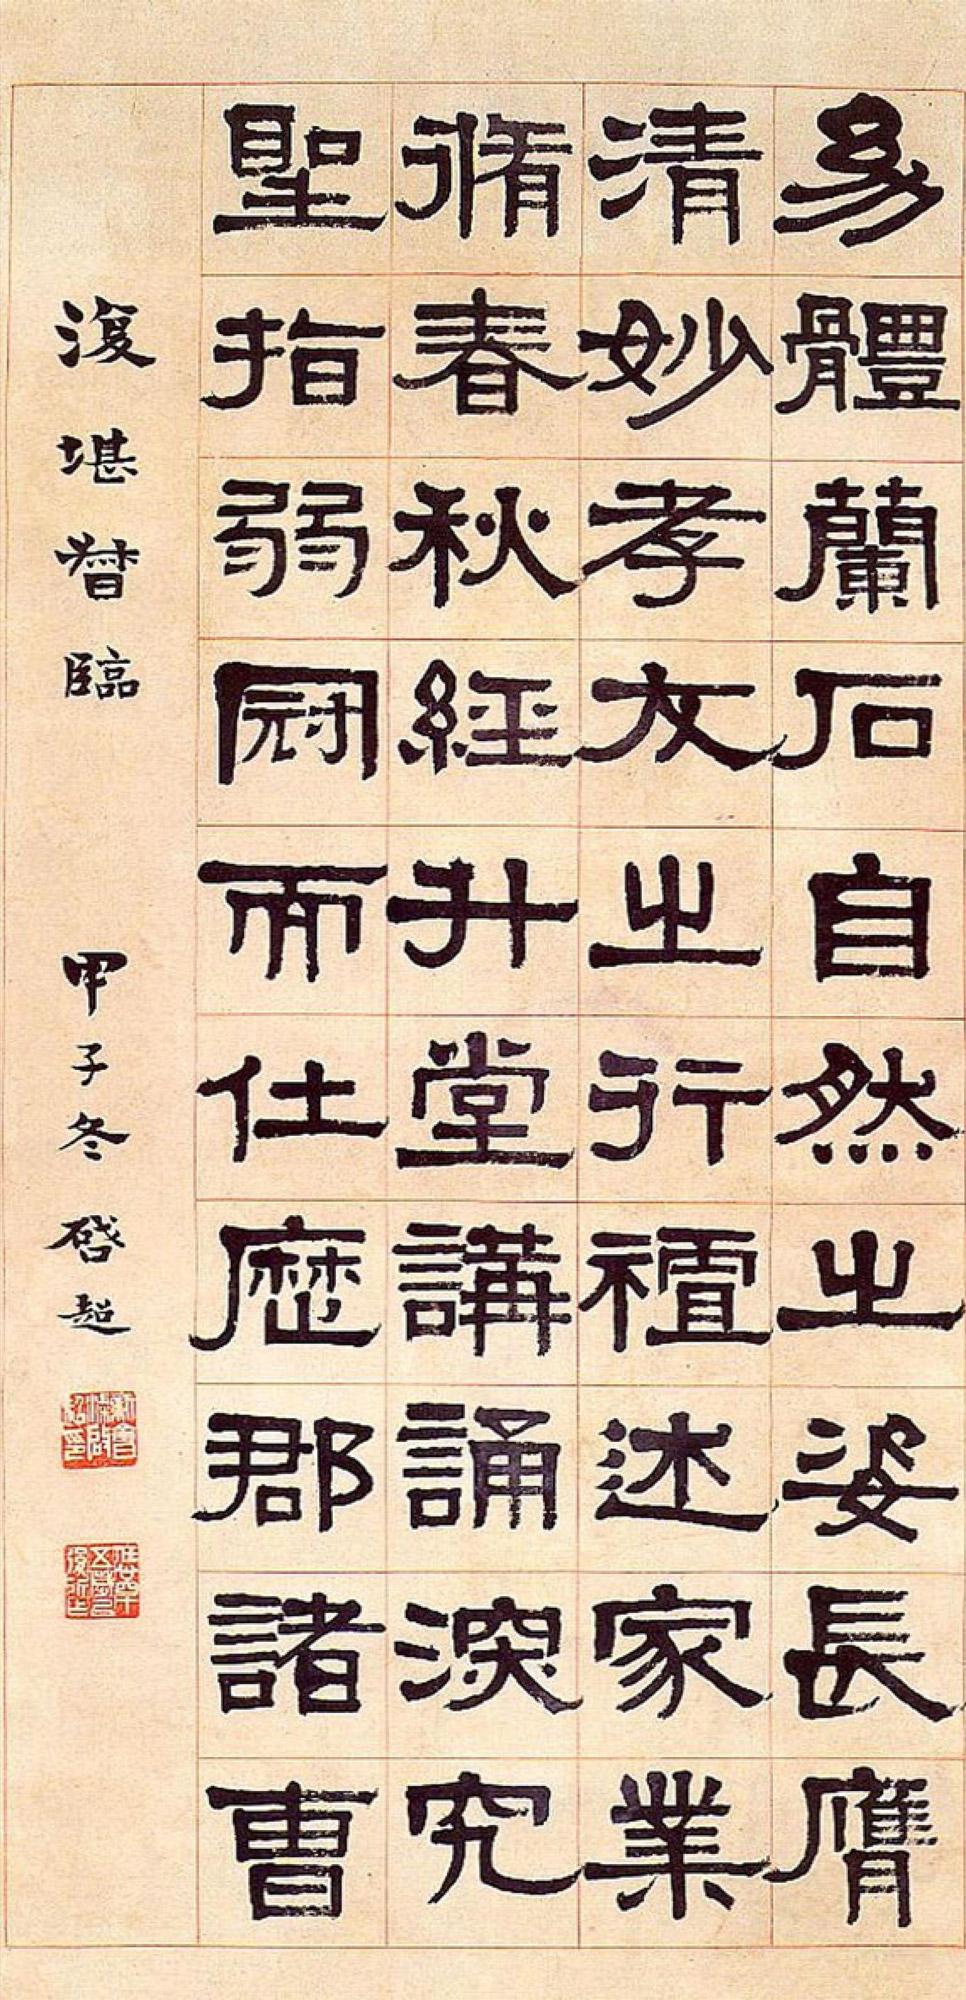 幼體蘭石自然之姿長膺
清妙孝友之行禪述家業
脩春秋經升堂講誦深究
聖指弱冠而仕歷郡諸曹
復堪督臨 甲子冬 啓超
新會梁啟超印